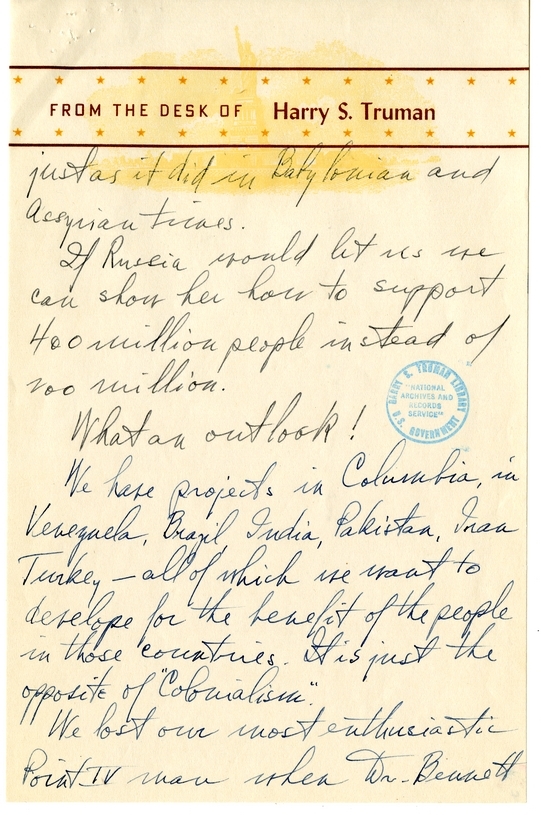 FROM THE DESK OF Harry S. Truman
just as it did in Babylonian and
Assyrian times.
If Russia would let us we
can show her how to support
400 million people instead of
200 million.
What an outlook!
HARRY S. TRUMAN LIBRARY
"NATIONAL
ARCHIVES AND
RECORDS
SERVICE"
U.S. GOVERNMENT
We have projects in Columbia, in
Venezuela, Brazil India, Pakistan, Iran
Turkey – all of which we want to
develope for the benefit of the people
in those countries. It is just the
opposite of "Colonialism".
We lost our most enthusiastic
Point IV man when Dr. Bennett